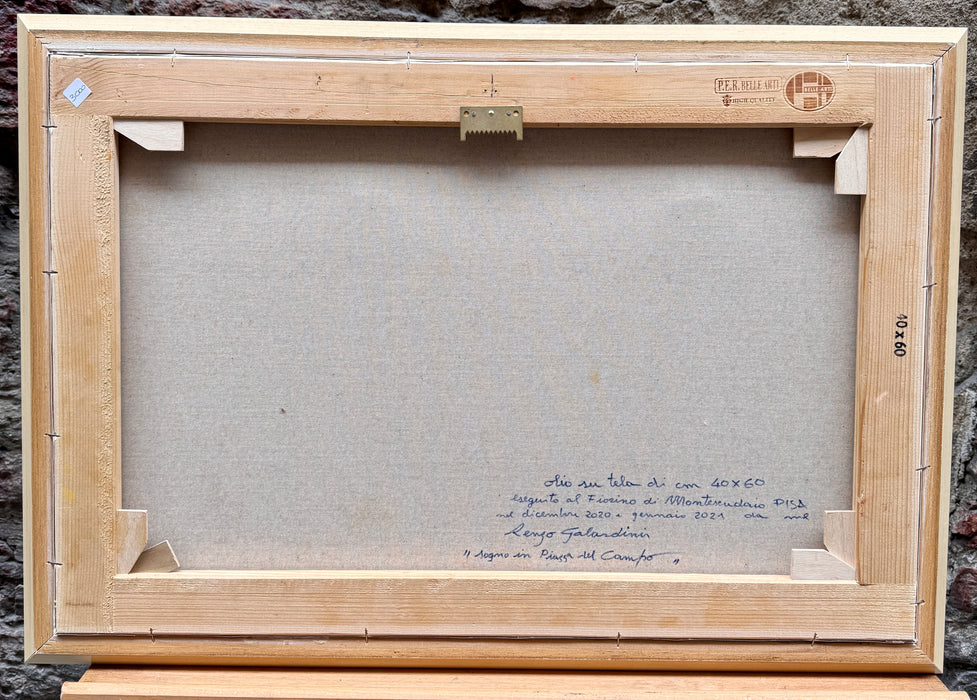 3000
P.E.R. BELLE ARTI
HIGH QUALITY
BELLE ARTI
40 x 60
olio su tela di cm 40x60
eseguito al Fiorino di Montescudaio PISA
nel dicembre 2020 e gennaio 2021 da me
Renzo Galardini
" sogno in Piazza del Campo "